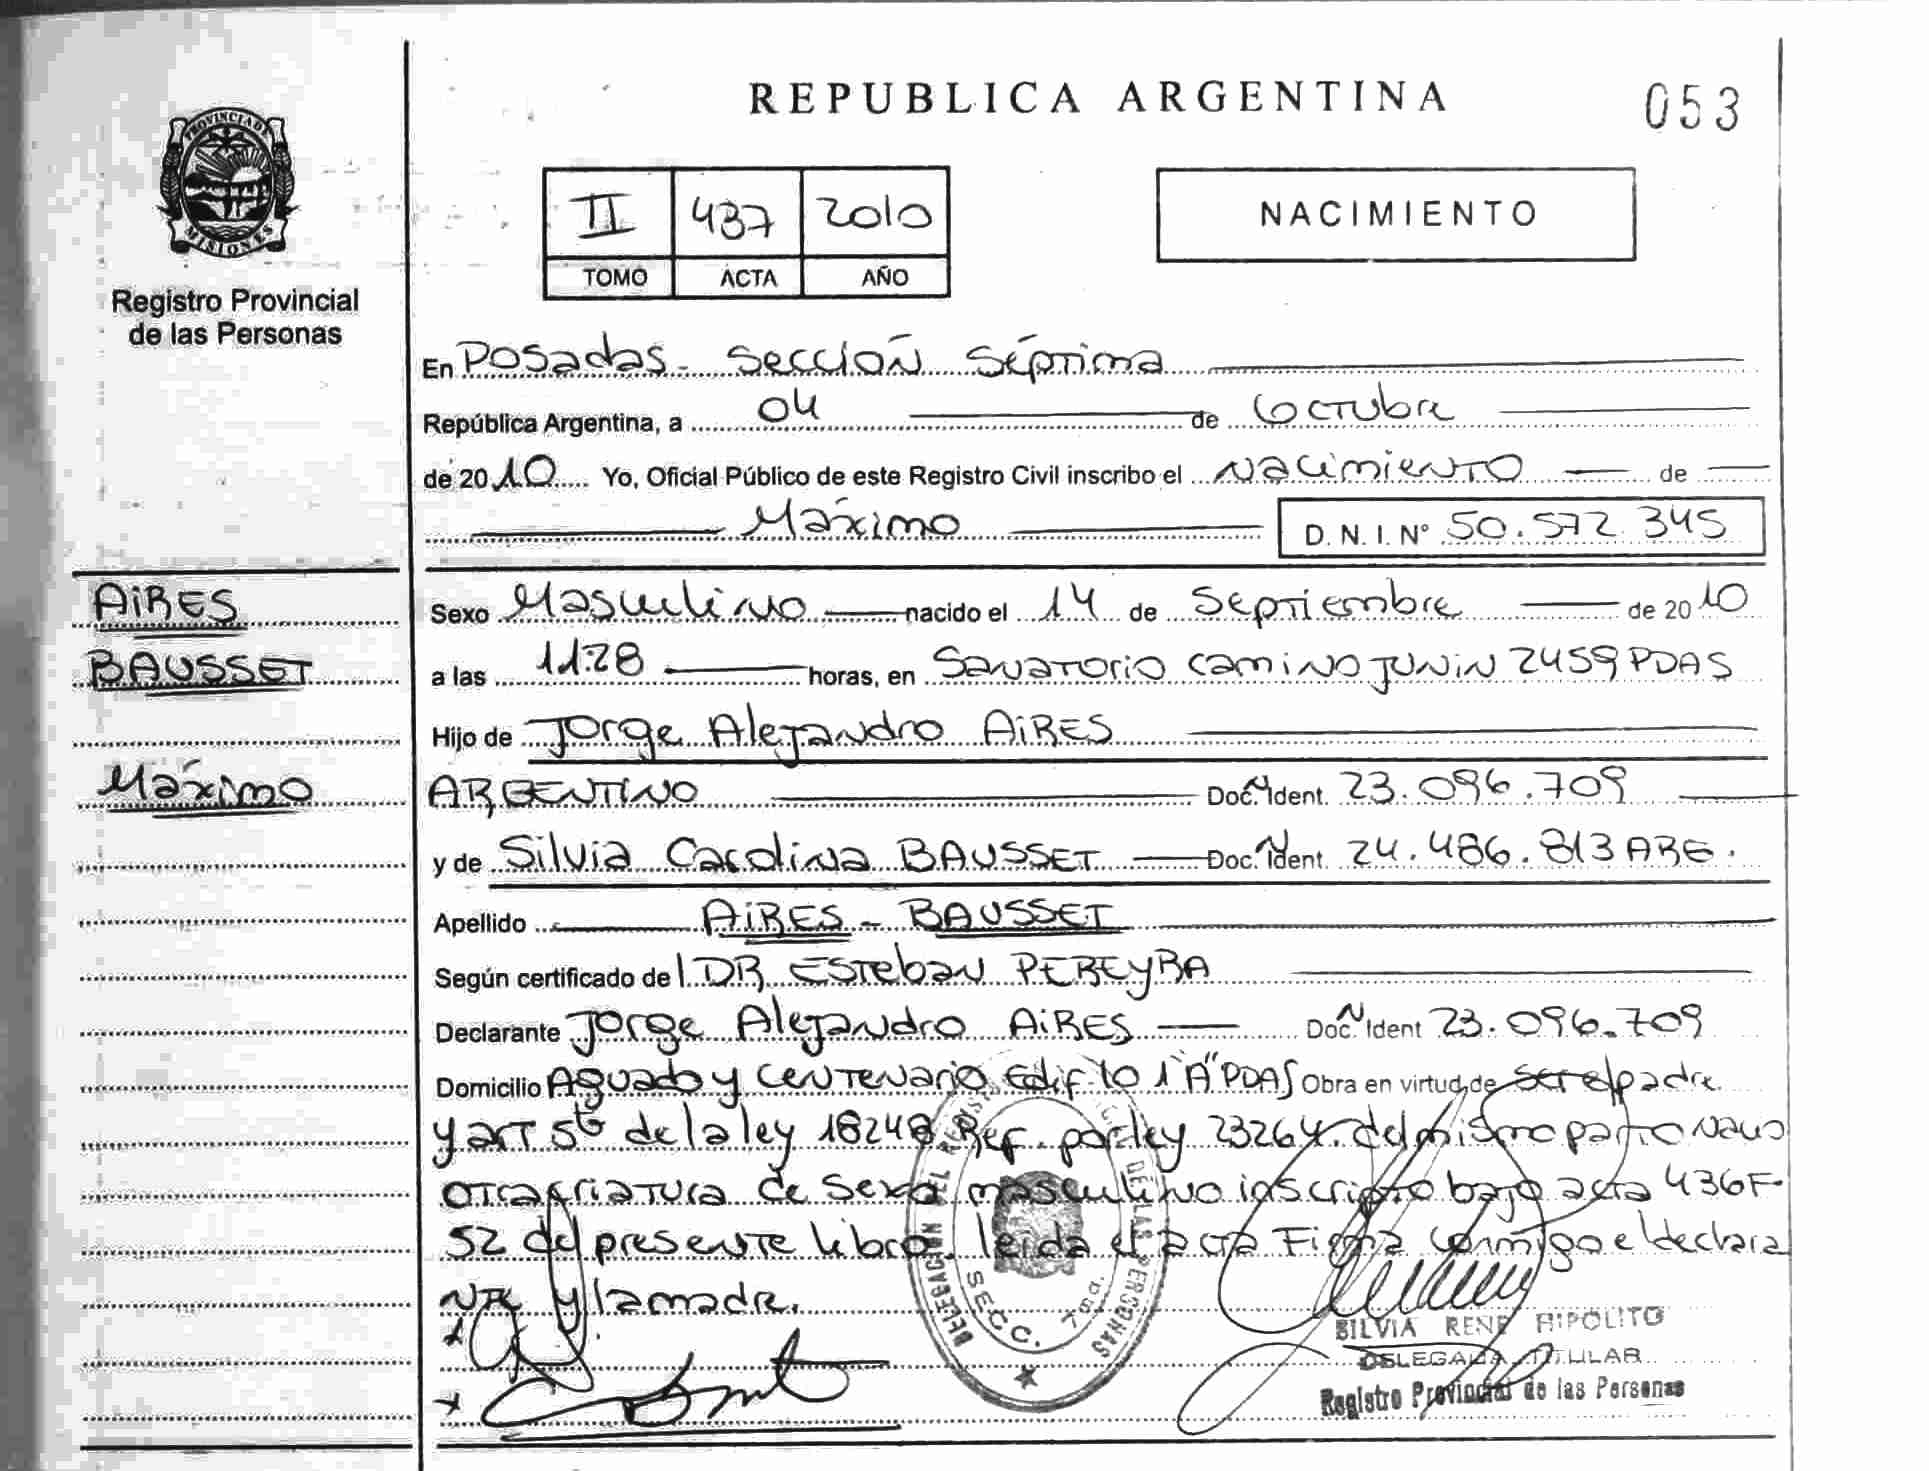 REPUBLICA ARGENTINA
053
PROVINCIA DE MISIONES
Registro Provincial
de las Personas
II 437 2010
TOMO ACTA AÑO
NACIMIENTO
En Posadas - Sección Séptima
República Argentina, a 04 de Octubre
de 2010 Yo, Oficial Público de este Registro Civil inscribo el Nacimiento de
Máximo
D. N. I. Nº 50.572.345
AIRES
BAUSSET
Máximo
Sexo Masculino nacido el 14 de Septiembre de 2010
a las 11:28 horas, en Sanatorio Camino Junin 2459 PDAS
Hijo de Jorge Alejandro AIRES
ARGENTINO Doc. Ident. 23.096.709
y de Silvia Carolina BAUSSET Doc. Ident. 24.486.813 ARG.
Apellido AIRES - BAUSSET
Según certificado de DR Esteban PEREYRA
Declarante Jorge Alejandro AIRES Doc. Ident 23.096.709
Domicilio Aguado y Centenario Edif 10 1 "A" PDAS Obra en virtud de ser el padre
y art 5to de la ley 18248 Ref. por ley 23264. del mismo parto nacio
otra criatura de sexo masculino inscripto bajo acta 436 F-
52 del presente libro. leida el acta Firma conmigo el declara
nte y la madre.
DELEGACION DEL REGISTRO DE LAS PERSONAS
SECC. 7ma.
SILVIA RENE HIPOLITO
DELEGADA TITULAR
Registro Provincial de las Personas